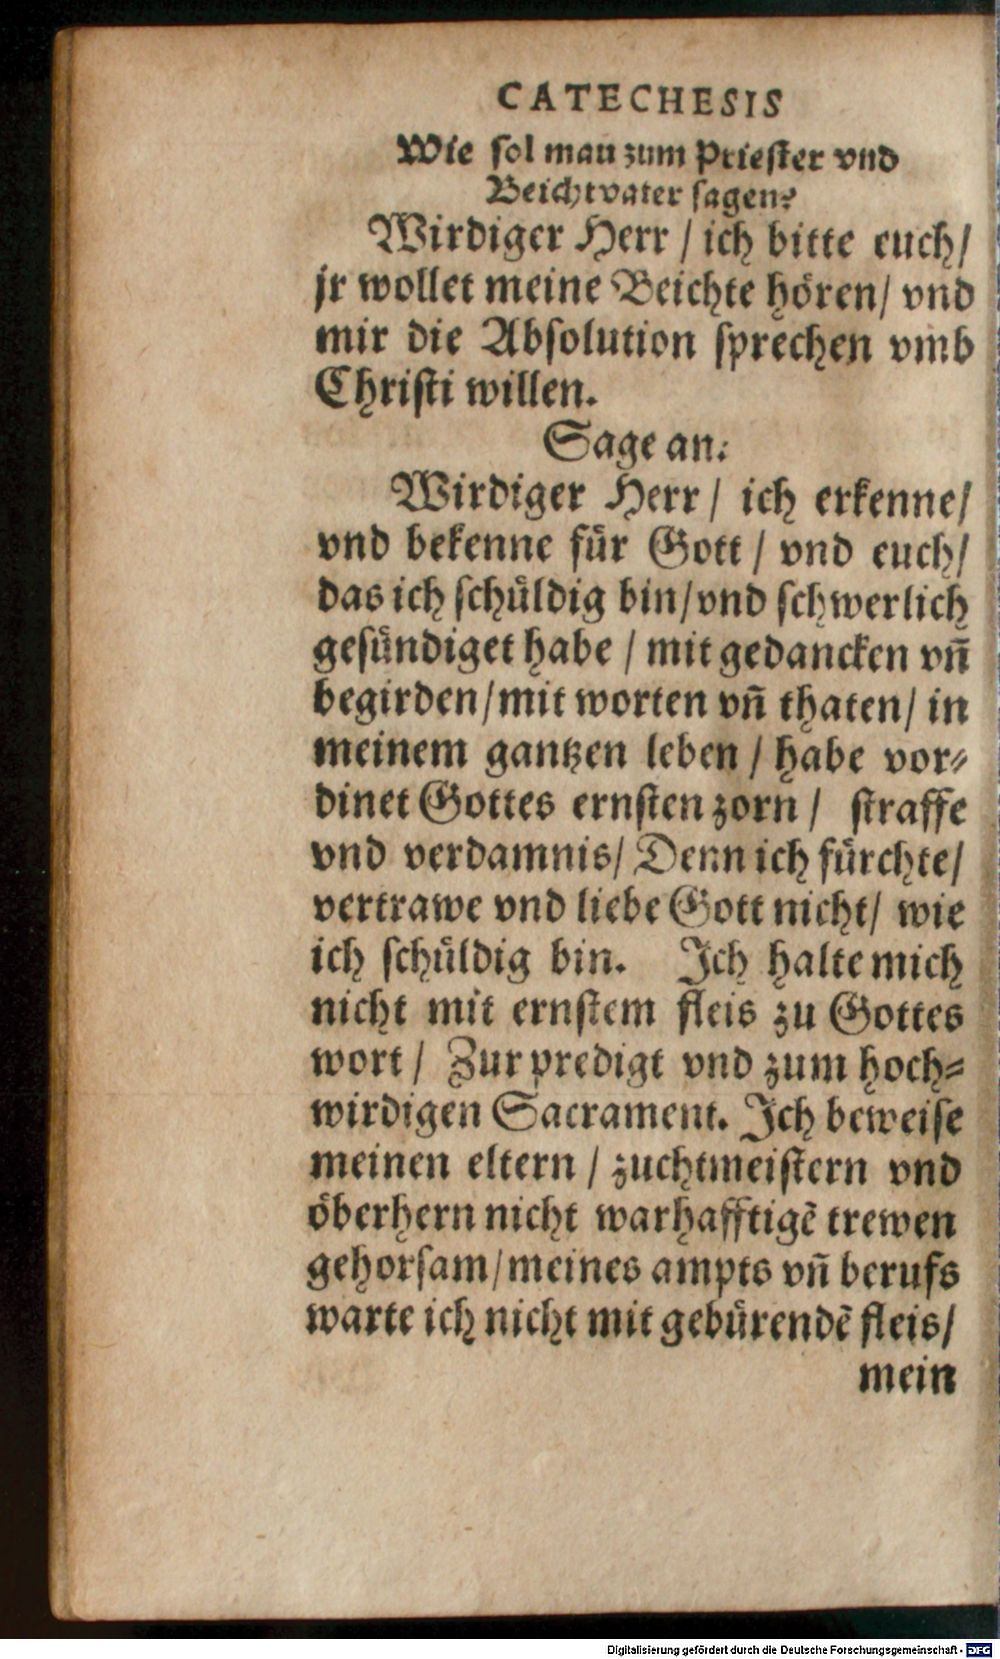 CATECHESIS
Wie sol man zum Priester vnd
Beichtvater sagen?
Wirdiger Herr / ich bitte euch/
jr wollet meine Beichte hören/ vnd
mir die Absolution sprechen vmb
Christi willen.
Sage an:
Wirdiger Herr / ich erkenne/
vnd bekenne für Gott / vnd euch/
das ich schüldig bin/vnd schwerlich
gesündiget habe / mit gedancken vñ
begirden/mit worten vñ thaten/ in
meinem gantzen leben / habe vor⸗
dinet Gottes ernsten zorn / straffe
vnd verdamnis/ Denn ich fürchte/
vertrawe vnd liebe Gott nicht/ wie
ich schüldig bin. Ich halte mich
nicht mit ernstem fleis zu Gottes
wort / Zur predigt vnd zum hoch⸗
wirdigen Sacrament. Ich beweise
meinen eltern / zuchtmeistern vnd
öberhern nicht warhafftigẽ trewen
gehorsam/meines ampts vñ berufs
warte ich nicht mit gebürendẽ fleis/
mein
Digitalisierung gefördert durch die Deutsche Forschungsgemeinschaft - DFG